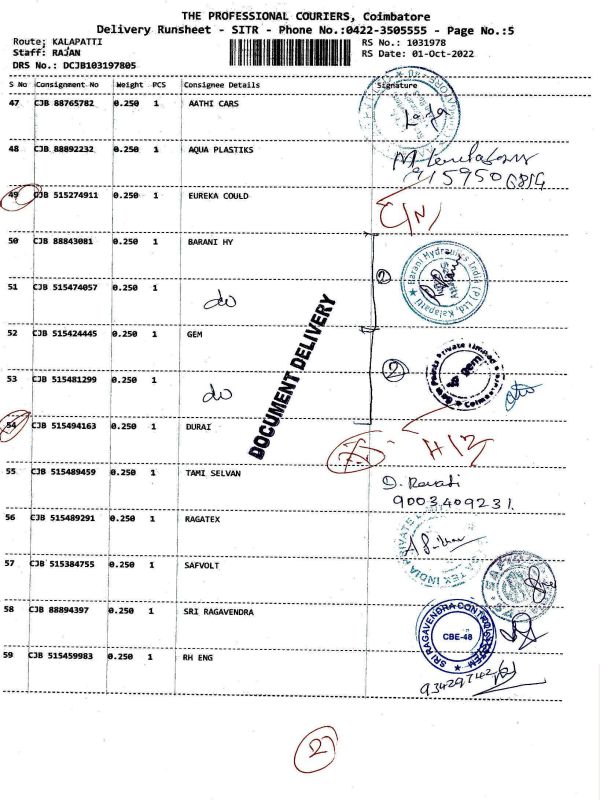 THE PROFESSIONAL COURIERS, Coimbatore
Delivery Runsheet - SITR - Phone No.:0422-3505555 - Page No.:5
Route; KALAPATTI RS No.: 1031978
Staff: RAJAN RS Date: 01-Oct-2022
DRS No.: DCJB103197805
S No Consignment No Weight PCS Consignee Details Signature
47 CJB 88765782 0.250 1 AATHI CARS
48 CJB 88892232 0.250 1 AQUA PLASTIKS
49 CJB 515274911 0.250 1 EUREKA COULD
C/N
50 CJB 88843081 0.250 1 BARANI HY
Barani Hydraulics India (P) Ltd, Kalapatti
2
51 CJB 515474057 0.250 1 do
DOCUMENT DELIVERY
52 CJB 515424445 0.250 1 GEM
2
53 CJB 515481299 0.250 1 do
54 CJB 515494163 0.250 1 DURAI
55 CJB 515489459 0.250 1 TAMI SELVAN
D. Revati
9003409231.
56 CJB 515489291 0.250 1 RAGATEX
57 CJB 515384755 0.250 1 SAFVOLT
58 CJB 88894397 0.250 1 SRI RAGAVENDRA
CBE-48
59 CJB 515459983 0.250 1 RH ENG
2